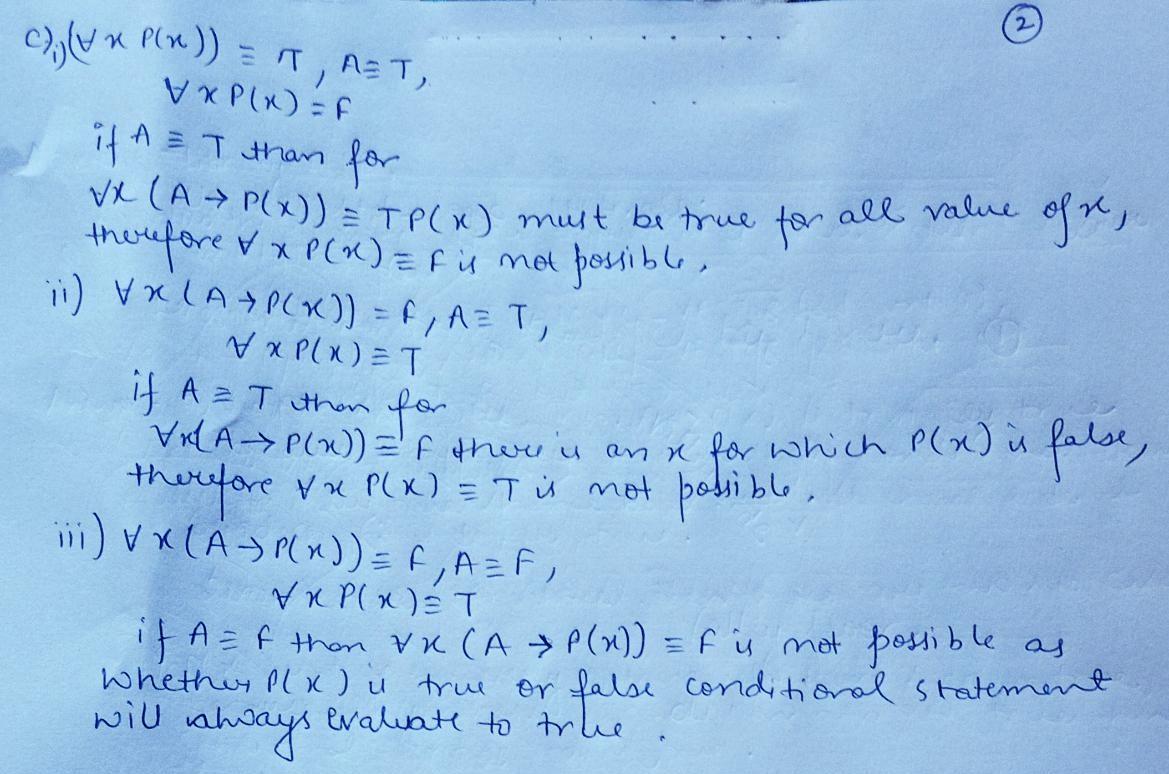 ②
c) i) (∀x P(x)) ≡ T, A ≡ T,
∀x P(x) = F
if A ≡ T than for
∀x (A → P(x)) ≡ T P(x) must be true for all value of x,
therefore ∀x P(x) = F is not possible,
ii) ∀x (A → P(x)) = F, A ≡ T,
∀x P(x) ≡ T
if A ≡ T then for
∀x(A → P(x)) ≡ F there is an x for which P(x) is false,
therefore ∀x P(x) ≡ T is not possible.
iii) ∀x (A → P(x)) ≡ F, A ≡ F,
∀x P(x) ≡ T
if A ≡ F then ∀x (A → P(x)) ≡ F is not possible as
whether P(x) is true or false conditional statement
will always evaluate to true.